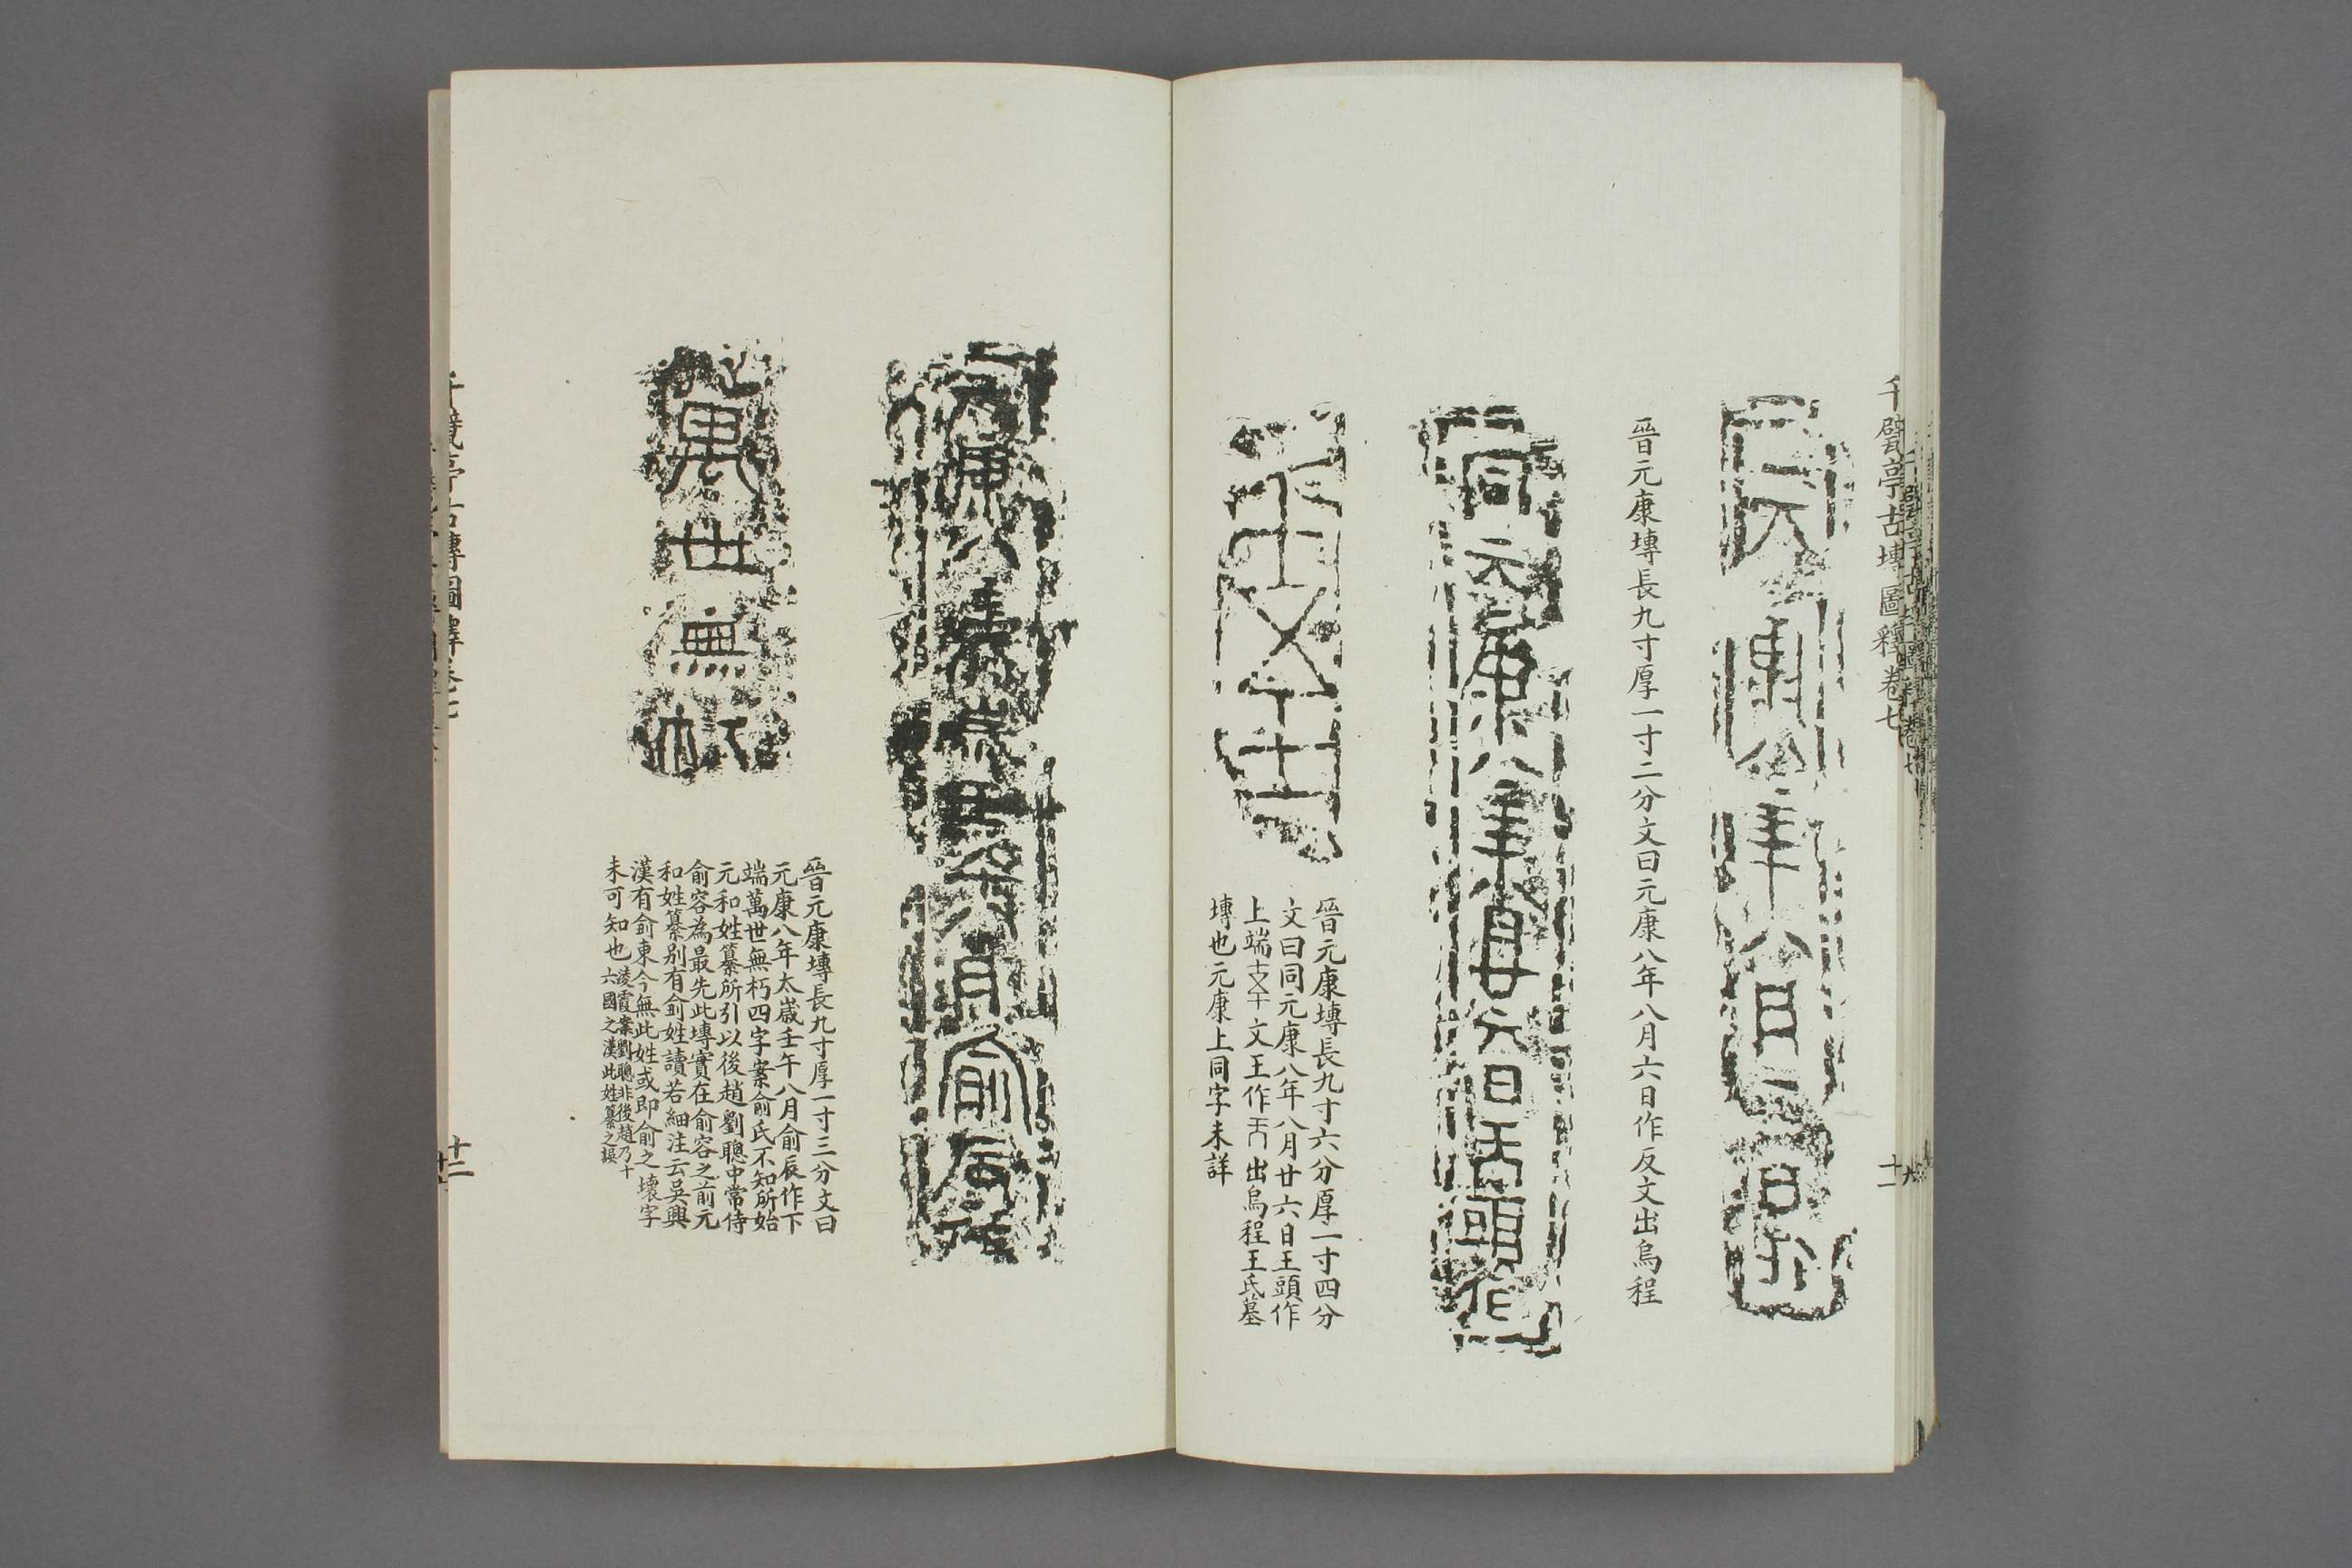 千甓亭古塼圖釋卷七
十一
晉元康塼長九寸厚一寸二分文曰元康八年八月六日作反文出烏程
同元康八年八月廿六日王頭作
晉元康塼長九寸六分厚一寸四分
文曰同元康八年八月廿六日王頭作
上端 文王作 出烏程王氏墓
塼也元康上同字未詳
萬世無朽
晉元康塼長九寸厚一寸三分文曰
元康八年太歲壬午八月俞辰作下
端萬世無朽四字案俞氏不知所始
元和姓纂所引以後趙劉聰中常侍
俞容為最先此塼實在俞容之前元
和姓纂别有俞姓讀若細注云吳興
漢有俞東今無此姓或即俞之壞字
未可知也淩霞案劉聰非後趙乃十
六國之漢此姓纂之誤
千甓亭古塼圖釋卷七
十二